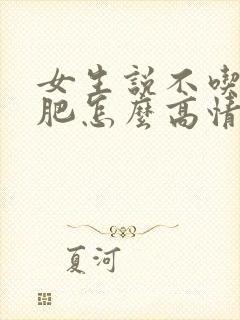 女生説不喫
肥怎麽高情
夏河